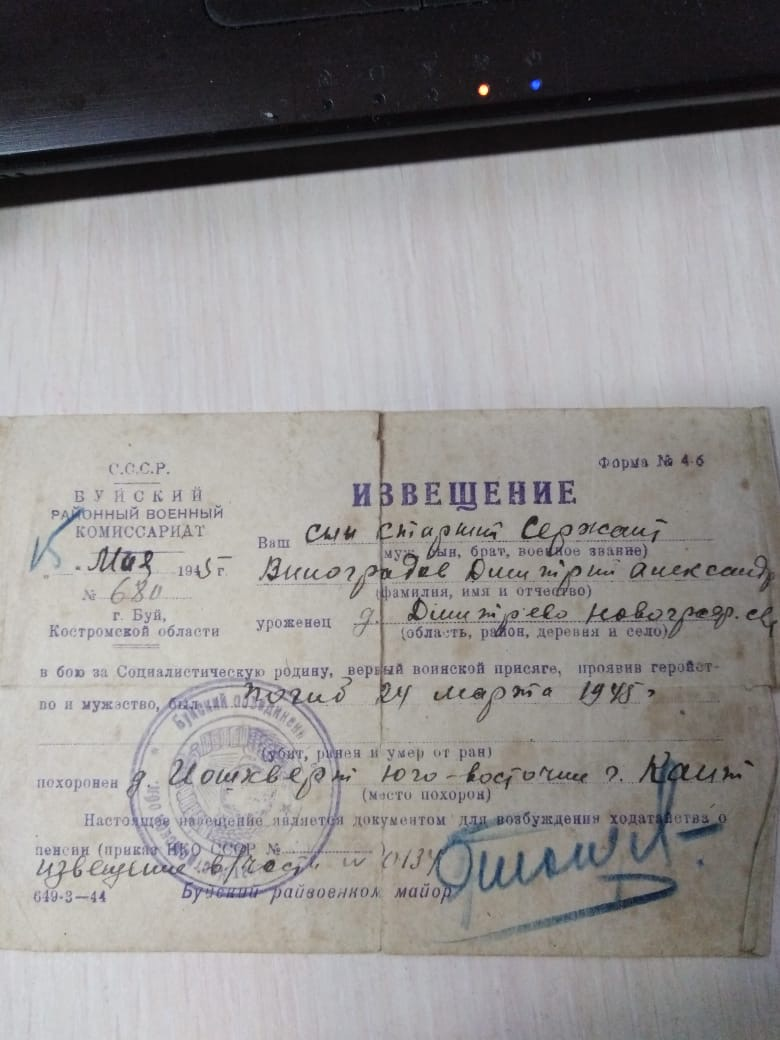 С.С.С.Р.
БУЙСКИЙ
РАЙОННЫЙ ВОЕННЫЙ
КОМИССАРИАТ
" " Мая 1945 г.
№ 680
г. Буй,
Костромской области
Форма № 4-б
ИЗВЕЩЕНИЕ
Ваш сын старший сержант
(муж, сын, брат, военное звание)
Виноградов Дмитрий Александр
(фамилия, имя и отчество)
уроженец д. Дмитрево Новограф. с/с
(область, район, деревня и село)
в бою за Социалистическую родину, верный воинской присяге, проявив геройст-
во и мужество, был погиб 24 марта 1945 г
(убит, ранен и умер от ран)
похоронен д. юго-восточнее г.
(место похорон)
Настоящее извещение является документом для возбуждения ходатайства о
пенсии (приказ НКО СССР №
извещение в/части № 0134
649-3—44 Буйский райвоенком майор
Буйский объединен